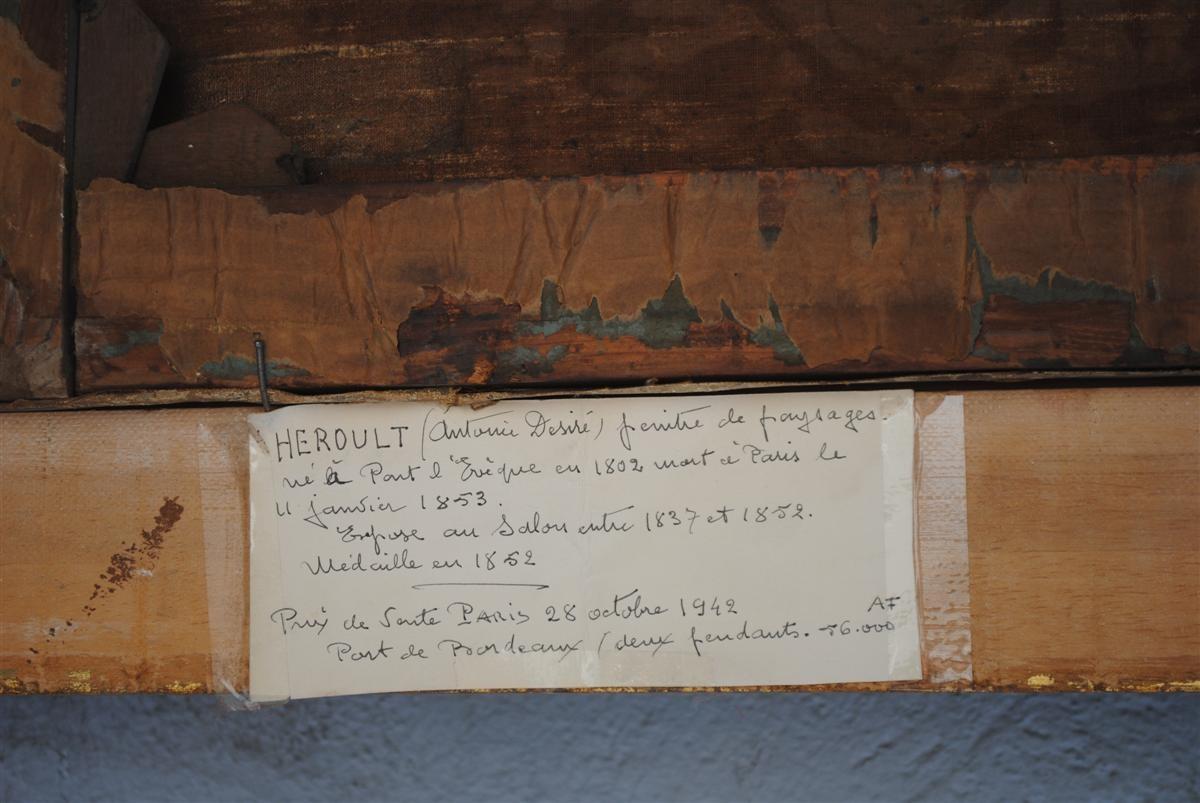 HEROULT (Antonie Desiré) peintre de paysages.
né à Pont l'Evêque en 1802 mort à Paris le
11 janvier 1853.
Expose au Salon entre 1837 et 1852.
Médaille en 1852
Prix de Vente PARIS 28 octobre 1942
AF
Port de Bordeaux (deux pendants. 56.000